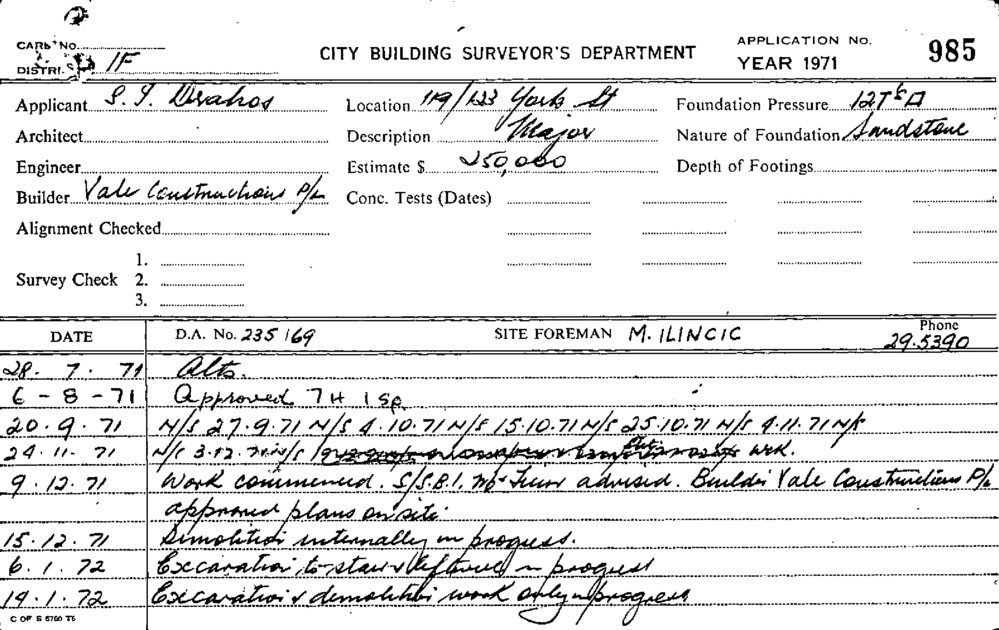 CARD NO.
DISTRI. 1F
CITY BUILDING SURVEYOR'S DEPARTMENT
APPLICATION No. 985
YEAR 1971
Applicant S. J. Drahos Location 119/133 York St Foundation Pressure 12T
Architect Description Major Nature of Foundation Sandstone
Engineer Estimate $ 250,000 Depth of Footings
Builder Vale Constructions P/L Conc. Tests (Dates)
Alignment Checked
1.
Survey Check 2.
3.
DATE D.A. No. 235/69 SITE FOREMAN M. ILINCIC Phone 29.5390
28. 7. 71 Alts.
6 - 8 - 71 Approved 7H 1 Sp.
20. 9. 71 N/S 27.9.71 N/S 4.10.71 N/S 15.10.71 N/S 25.10.71 N/S 4.11.71 N/S
24. 11. 71 N/S 3.12.71 N/S wk.
9. 12. 71 Work commenced. S/S.B.I. advised. Builder Vale Constructions P/L
approved plans on site.
15. 12. 71 Demolition internally in progress.
6. 1. 72 Excavation to stair & in progress
14. 1. 72 Excavation & demolition work only in progress
C OF S 6760 T6